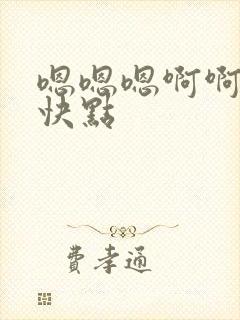 嗯嗯嗯啊啊
快點
費孝通